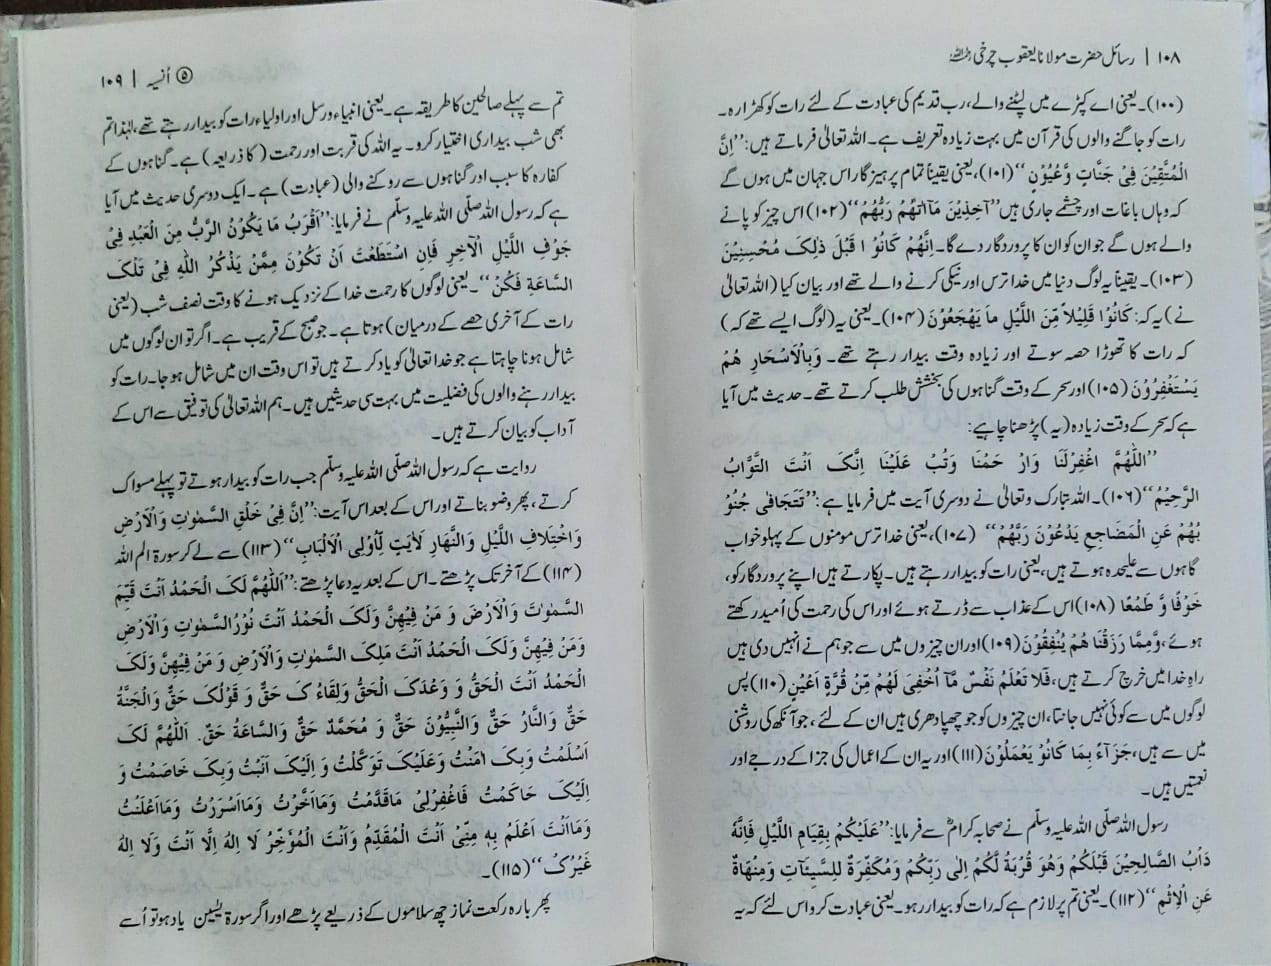 ۱۰۸ | رسائل حضرت مولانا یعقوب چرخی رحمۃ اللہ علیہ
(۱۰۰)۔ یعنی اے کپڑے میں لپٹنے والے، رب قدیم کی عبادت کے لئے رات کو کھڑا رہ۔
رات کو جاگنے والوں کی قرآن میں بہت زیادہ تعریف ہے۔ اللہ تعالیٰ فرماتے ہیں: ’’اِنَّ
الْمُتَّقِیْنَ فِیْ جَنّٰتٍ وَّعُیُوْنٍ‘‘ (۱۰۱)، یعنی یقیناً تمام پرہیز گار اس جہان میں ہوں گے
کہ وہاں باغات اور چشمے جاری ہیں ’’آخِذِیْنَ مَآاٰتٰھُمْ رَبُّھُمْ‘‘ (۱۰۲) اس چیز کو پانے
والے ہوں گے جو ان کو ان کا پروردگار دے گا۔ اِنَّھُمْ کَانُوْا قَبْلَ ذٰلِکَ مُحْسِنِیْنَ
(۱۰۳)۔ یقیناً یہ لوگ دنیا میں خدا ترس اور نیکی کرنے والے تھے اور بیان کیا (اللہ تعالیٰ
نے) یہ کہ: کَانُوْا قَلِیْلاً مِّنَ اللَّیْلِ مَا یَھْجَعُوْنَ (۱۰۴)۔ یعنی یہ (لوگ ایسے تھے کہ)
کہ رات کا تھوڑا حصہ سوتے اور زیادہ وقت بیدار رہتے تھے۔ وَبِالْاَسْحَارِ ھُمْ
یَسْتَغْفِرُوْنَ (۱۰۵) اور سحر کے وقت گناہوں کی بخشش طلب کرتے تھے۔ حدیث میں آیا
ہے کہ سحر کے وقت زیادہ (یہ) پڑھنا چاہیے:
’’اَللّٰھُمَّ اغْفِرْلَنَا وَارْ حَمْنَا وَتُبْ عَلَیْنَا اِنَّکَ اَنْتَ التَّوَّابُ
الرَّحِیْمُ‘‘ (۱۰۶)۔ اللہ تبارک وتعالیٰ نے دوسری آیت میں فرمایا ہے: ’’تَتَجَافٰی جُنُوْ
بُھُمْ عَنِ الْمَضَاجِعِ یَدْعُوْنَ رَبَّھُمْ‘‘ (۱۰۷)، یعنی خدا ترس مومنوں کے پہلو خواب
گاہوں سے علیحدہ ہوتے ہیں، یعنی رات کو بیدار رہتے ہیں۔ پکارتے ہیں اپنے پروردگار کو،
خَوْفًا وَّ طَمْعًا (۱۰۸) اس کے عذاب سے ڈرتے ہوئے اور اس کی رحمت کی اُمید رکھتے
ہوئے، وَّمِمَّا رَزَقْنَا ھُمْ یُنْفِقُوْنَ (۱۰۹) اور ان چیزوں میں سے جو ہم نے انہیں دی ہیں
راہِ خدا میں خرچ کرتے ہیں، فَلَا تَعْلَمُ نَفْسٌ مَّآ اُخْفِیَ لَھُمْ مِّنْ قُرَّۃِ اَعْیُنٍ (۱۱۰) پس
لوگوں میں سے کوئی نہیں جانتا، ان چیزوں کو جو چھپا دھری ہیں ان کے لئے، جو آنکھ کی روشنی
میں سے ہیں، جَزَآءً بِمَا کَانُوْ یَعْمَلُوْنَ (۱۱۱) اور یہ ان کے اعمال کی جزا کے درجے اور
نعمتیں ہیں۔
رسول اللہ صلّی اللہ علیہ وسلّم نے صحابہ کرامؓ سے فرمایا: ’’عَلَیْکُمْ بِقِیَامِ اللَّیْلِ فَاِنَّہٗ
دَابُ الصَّالِحِیْنَ قَبْلَکُمْ وَھُوَ قُرْبَۃٌ لَّکُمْ اِلٰی رَبِّکُمْ وَمُکَفِّرَۃٌ لِلسَّیِئَآتِ وَمِنْھَاۃٌ
عَنِ الْاِثْمِ‘‘ (۱۱۲)۔ یعنی تم پر لازم ہے کہ رات کو بیدار رہو۔ یعنی عبادت کرو اس لئے کہ یہ
⑤ اُنسیہ | ۱۰۹
تم سے پہلے صالحین کا طریقہ ہے۔ یعنی انبیاء ورسل اور اولیاء رات کو بیدار رہتے تھے، لہٰذا تم
بھی شب بیداری اختیار کرو۔ یہ اللہ کی قربت اور رحمت (کا ذریعہ) ہے۔ گناہوں کے
کفارہ کا سبب اور گناہوں سے روکنے والی (عبادت) ہے۔ ایک دوسری حدیث میں آیا
ہے کہ رسول اللہ صلّی اللہ علیہ وسلّم نے فرمایا: ’’اَقْرَبُ مَا یَکُوْنُ الرَّبُّ مِنَ الْعَبْدِ فِیْ
جَوْفِ اللَّیْلِ الْاٰخِرِ فَاِنِ اسْتَطَعْتَ اَنْ تَکُوْنَ مِمَّنْ یَذْکُرُ اللّٰہَ فِیْ تِلْکَ
السَّاعَۃِ فَکُنْ‘‘۔ یعنی لوگوں کا رحمت خدا کے نزدیک ہونے کا وقت نصف شب (یعنی
رات کے آخری حصے کے درمیان) ہوتا ہے۔ جو صبح کے قریب ہے۔ اگر تو ان لوگوں میں
شامل ہونا چاہتا ہے جو خدا تعالیٰ کو یاد کرتے ہیں تو اس وقت ان میں شامل ہو جا۔ رات کو
بیدار رہنے والوں کی فضلیت میں بہت سی حدیثیں ہیں۔ ہم اللہ تعالیٰ کی توفیق سے اس کے
آداب کو بیان کرتے ہیں۔
روایت ہے کہ رسول اللہ صلّی اللہ علیہ وسلّم جب رات کو بیدار ہوتے تو پہلے مسواک
کرتے، پھر وضو بناتے اور اس کے بعد اس آیت: ’’اِنَّ فِیْ خَلْقِ السَّمٰوٰتِ وَالْاَرْضِ
وَاخْتِلَافِ اللَّیْلِ وَالنَّھَارِ لَاٰیٰتٍ لِّاُولِی الْاَلْبَابِ‘‘ (۱۱۳) سے لے کر سورۃ الم اللہ
(۱۱۴) کے آخر تک پڑھتے۔ اس کے بعد یہ دعا پڑھتے: ’’اَللّٰھُمَّ لَکَ الْحَمْدُ اَنْتَ قَیِّمُ
السَّمٰوٰتِ وَالْاَرْضِ وَ مَنْ فِیْھِنَّ وَلَکَ الْحَمْدُ اَنْتَ نُوْرُ السَّمٰوٰتِ وَالْاَرْضِ
وَمَنْ فِیْھِنَّ وَلَکَ الْحَمْدُ اَنْتَ مَلِکُ السَّمٰوٰتِ وَالْاَرْضِ وَ مَنْ فِیْھِنَّ وَلَکَ
الْحَمْدُ اَنْتَ الْحَقُّ وَ وَعْدَکَ الْحَقُّ وَلِقَاءُ کَ حَقٌّ وَ قَوْلُکَ حَقٌّ وَالْجَنَّۃُ
حَقٌّ وَالنَّارُ حَقٌّ وَالنَّبِیُّوْنَ حَقٌّ وَ مُحَمَّدٌ حَقٌّ وَالسَّاعَۃُ حَقٌّ. اَللّٰھُمَّ لَکَ
اَسْلَمْتُ وَبِکَ اٰمَنْتُ وَعَلَیْکَ تَوَکَّلْتُ وَ اِلَیْکَ اَنَبْتُ وَبِکَ خَاصَمْتُ وَ
اِلَیْکَ حَاکَمْتُ فَاغْفِرْلِیْ مَاقَدَّمْتُ وَمَااَخَّرْتُ وَمَااَسْرَرْتُ وَمَااَعْلَنْتُ
وَمَااَنْتَ اَعْلَمُ بِہٖ مِنِّیْ اَنْتَ الْمُقَدِّمُ وَاَنْتَ الْمُؤَخِّرُ لَا اِلٰہَ اِلَّا اَنْتَ وَلَا اِلٰہَ
غَیْرُکَ‘‘ (۱۱۵)۔
پھر بارہ رکعت نماز چھ سلاموں کے ذریعے پڑھے اور اگر سورۃ یٰسین یاد ہو تو اُسے